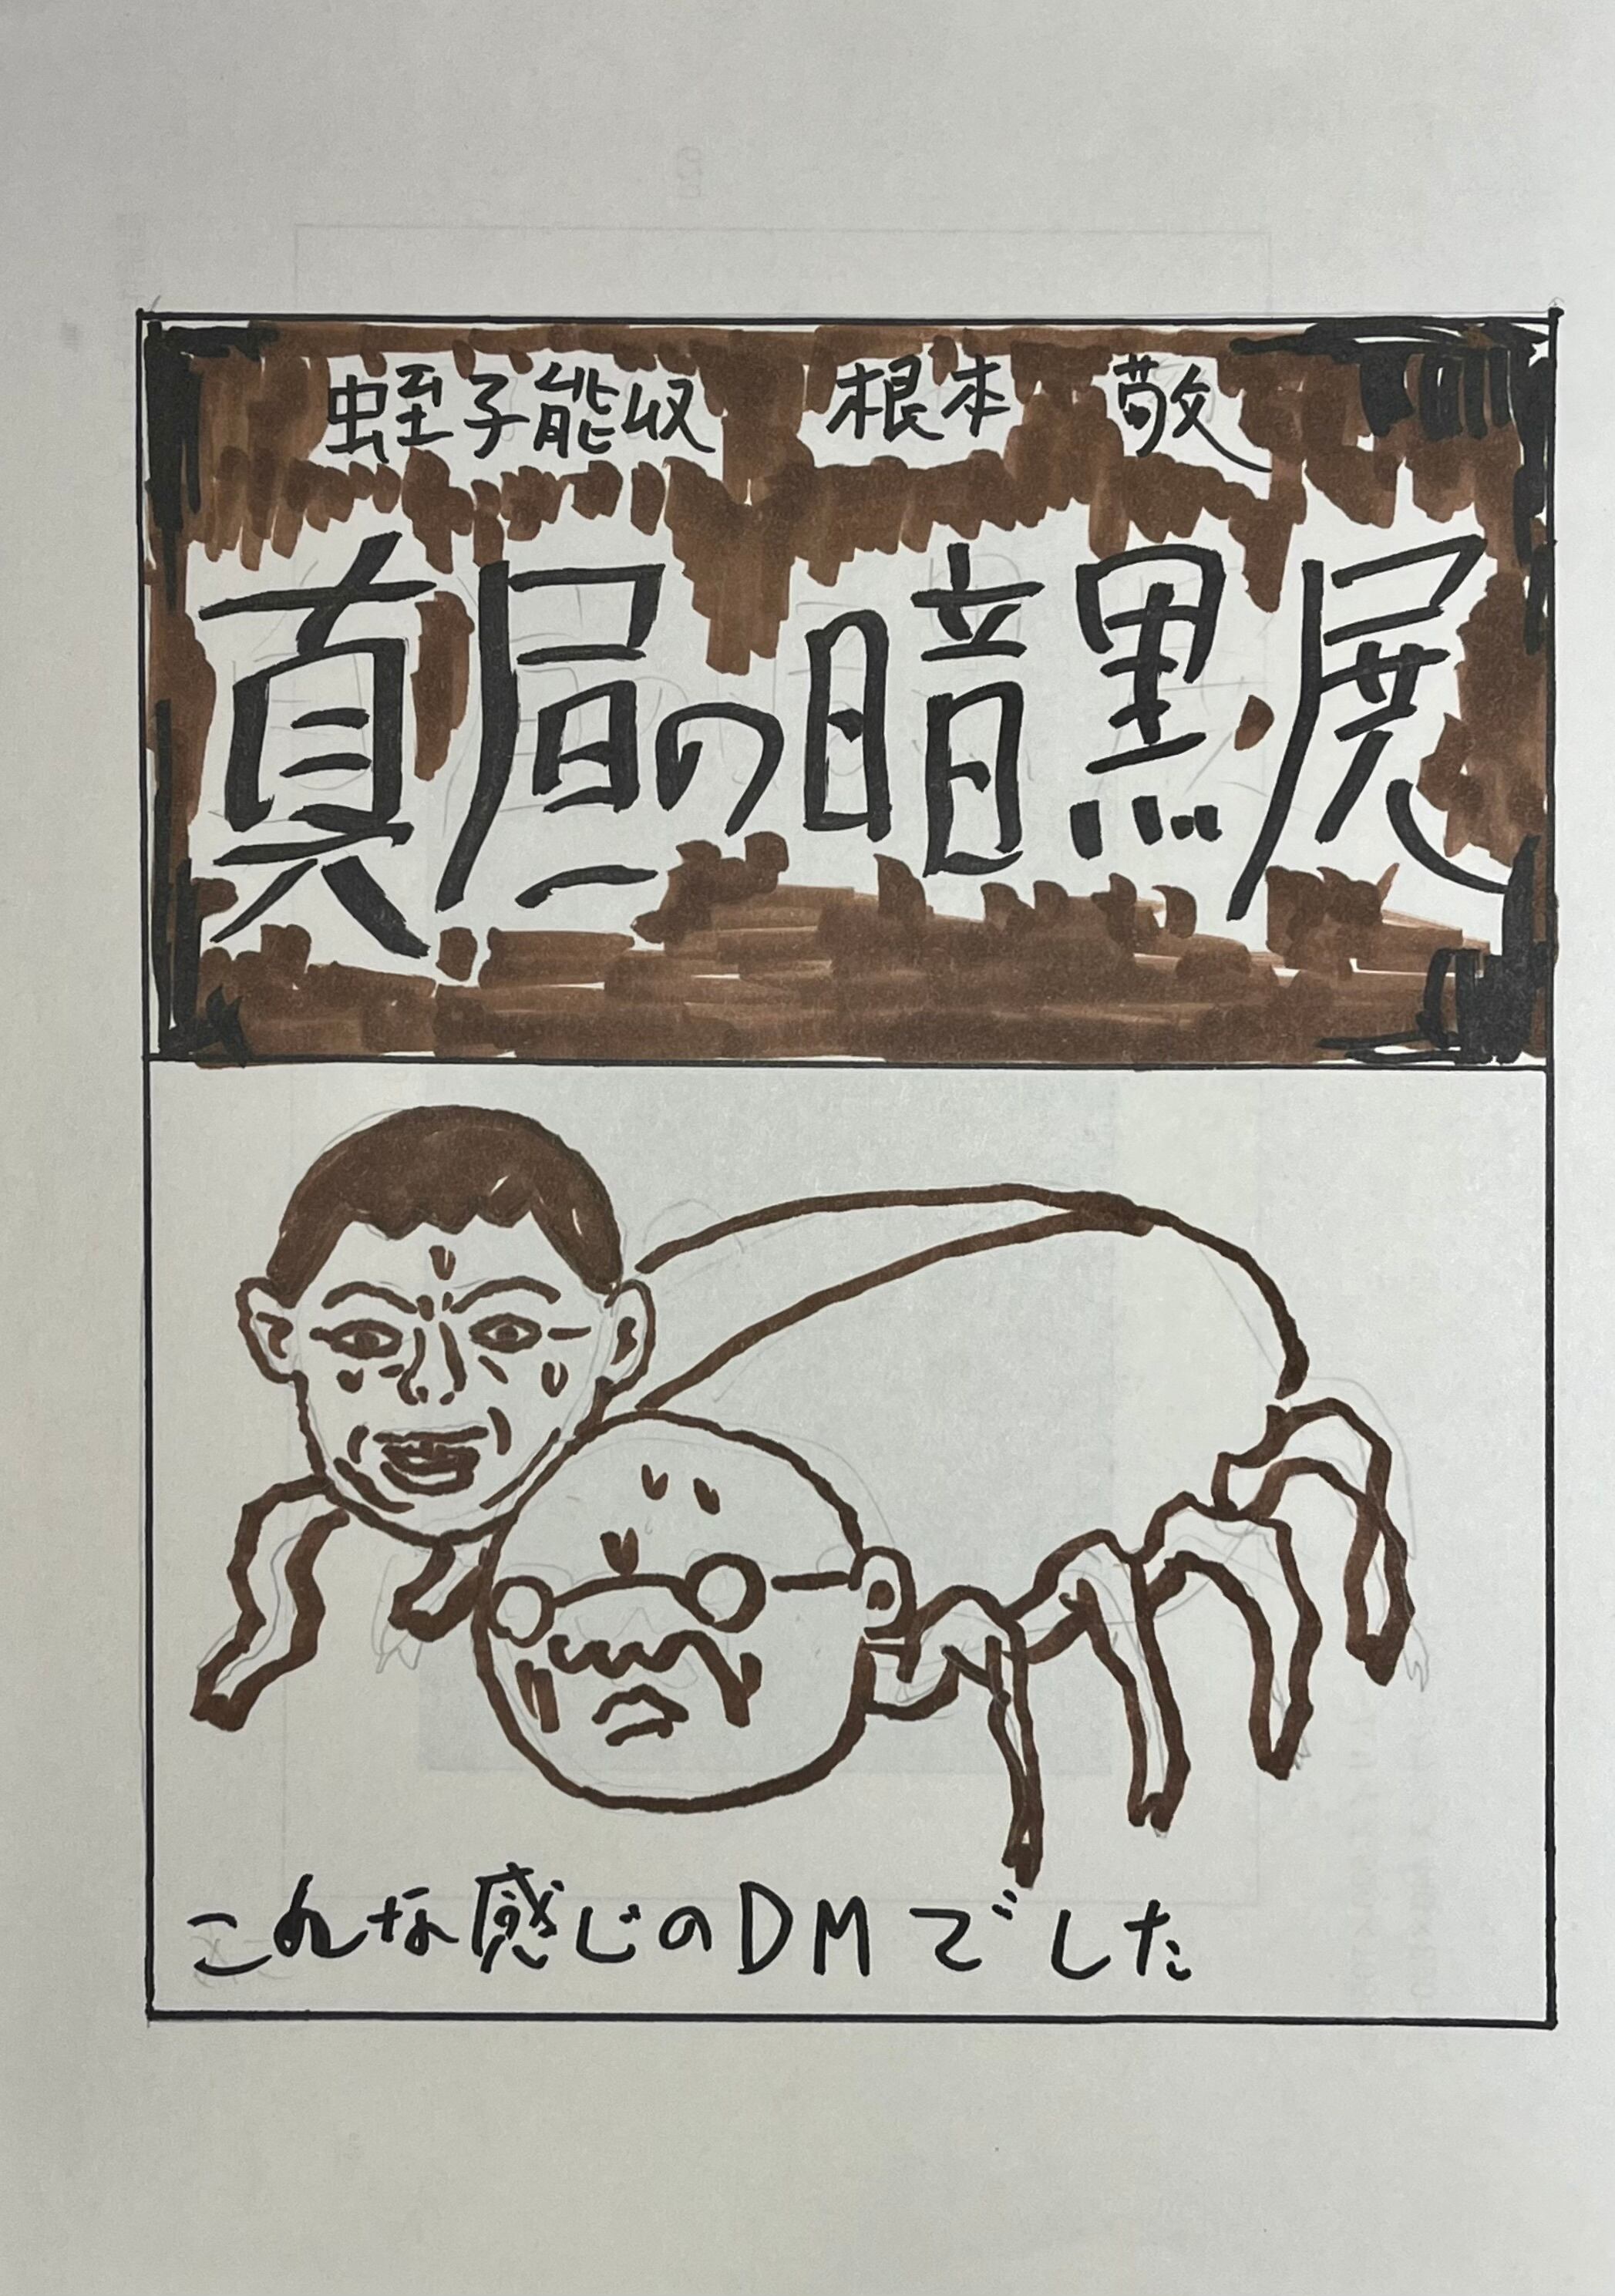 蛭子能収 根本 敬
真昼の暗黒展
これな感じのDMでした